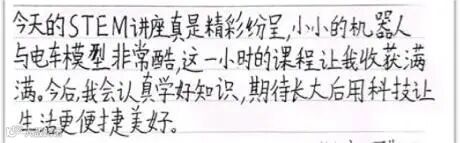 今天的STEM讲座真是精彩纷呈,小小的机器人
与电车模型非常酷,这一小时的课程让我收获满
满。今后,我会认真学好知识,期待长大后用科技让
生活更便捷美好。